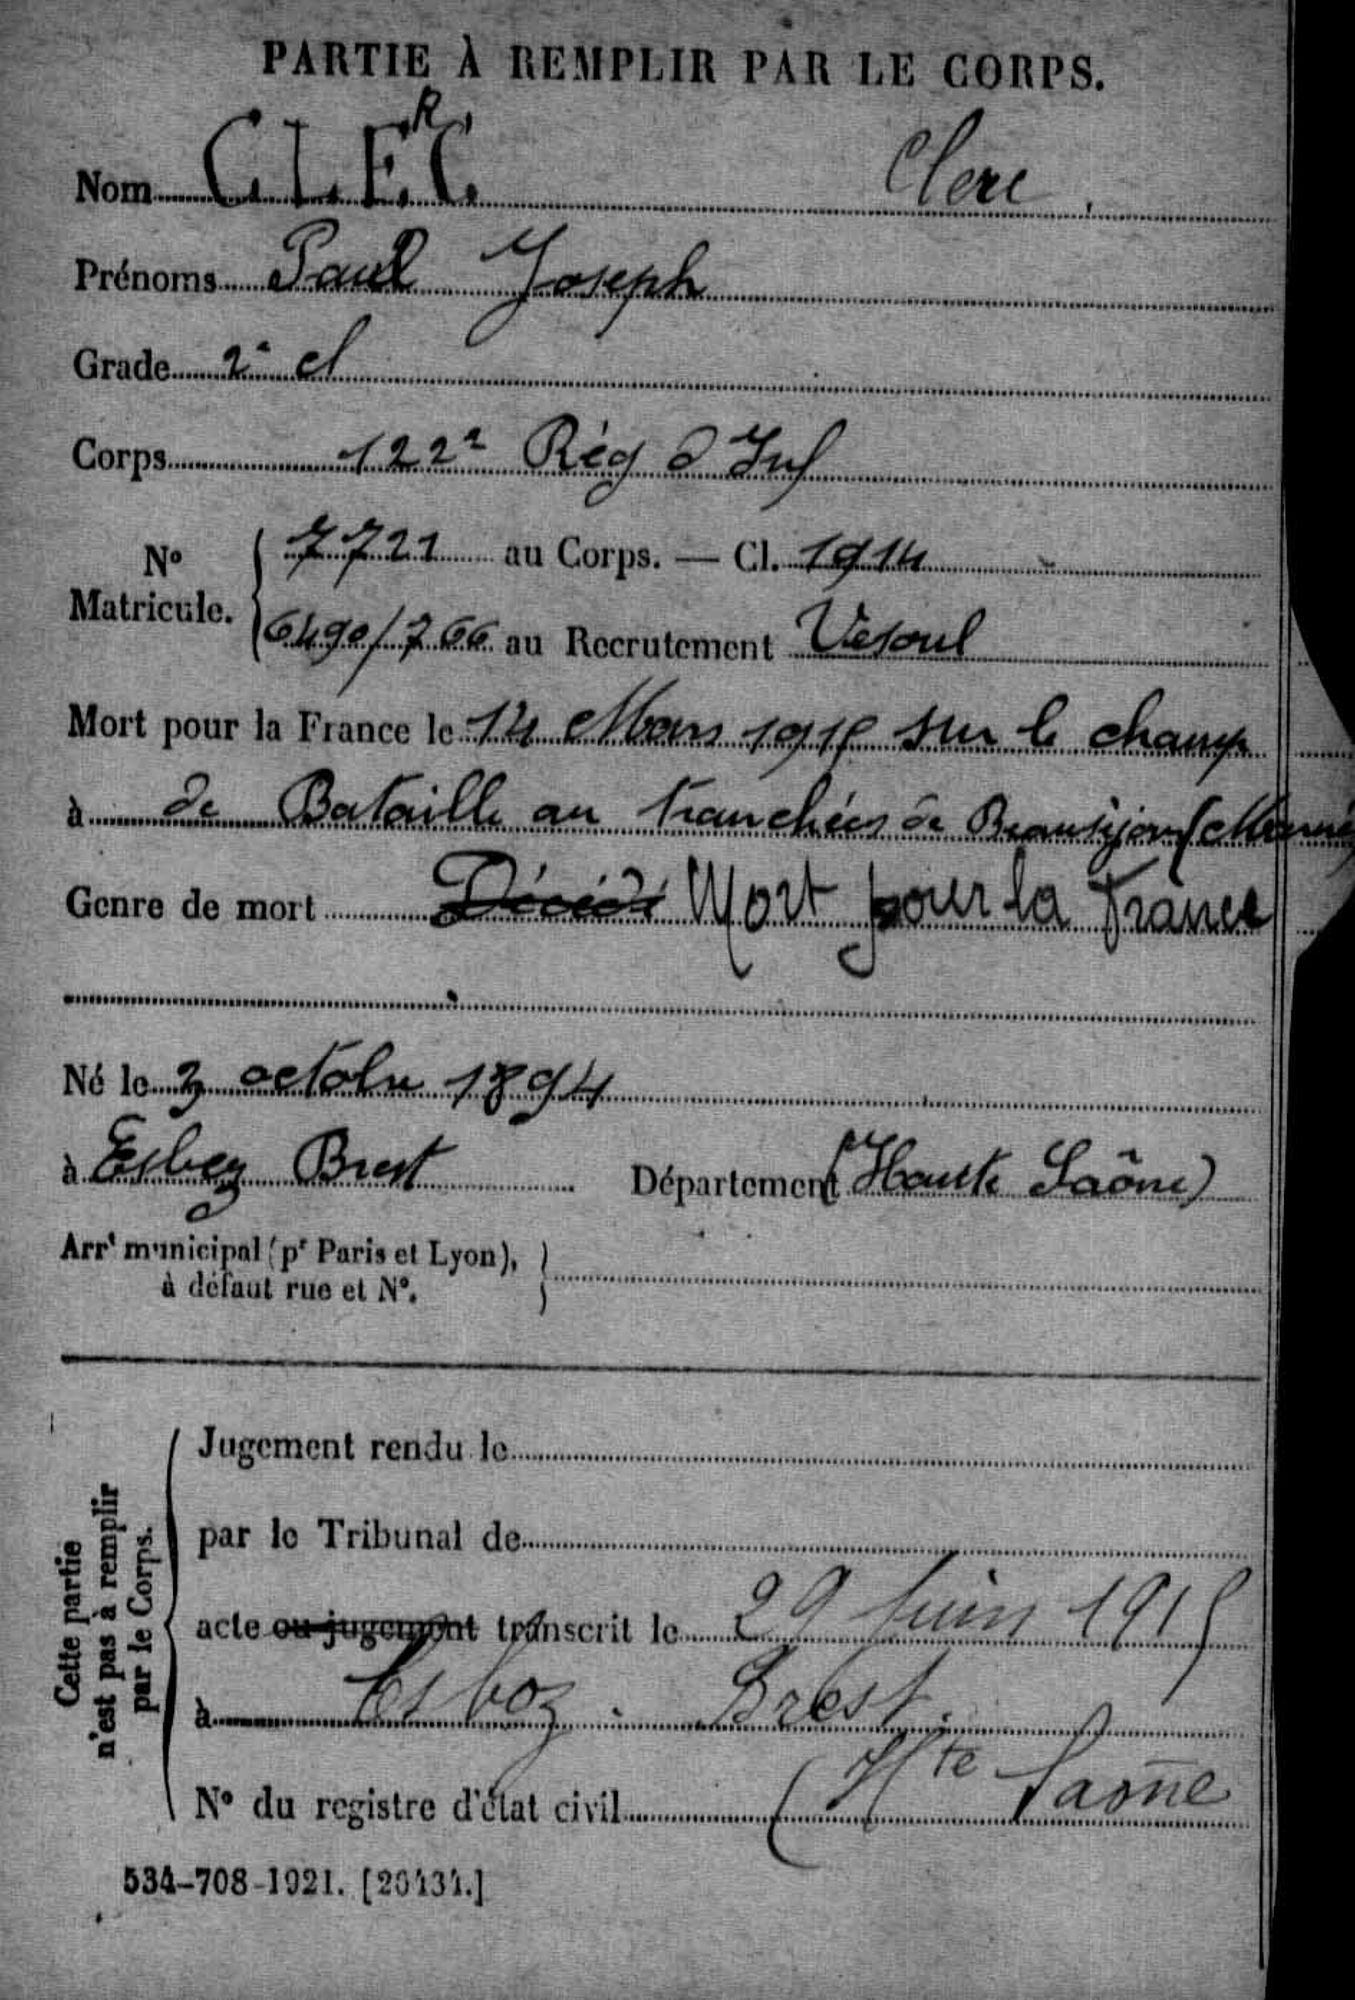 PARTIE À REMPLIR PAR LE CORPS.
Nom CLERC Clerc
Prénoms Paul Joseph
Grade 2e cl
Corps 122e Rég d'Inf
No Matricule. 7721 au Corps. — Cl. 1914
6490/766 au Recrutement Vesoul
Mort pour la France le 14 Mars 1915 sur le champ
à de Bataille au tranchées de Beauséjour (Marne)
Genre de mort Décédé Mort pour la France
Né le 3 octobre 1894
à Esboz Brest Département (Haute Saône)
Arrt municipal (pr Paris et Lyon),
à défaut rue et No.
Cette partie n'est pas à remplir par le Corps.
Jugement rendu le
par le Tribunal de
acte ou jugement transcrit le 29 juin 1915
à Esboz - Brest.
No du registre d'état civil (Hte Saône
534-708-1921. [26434.]